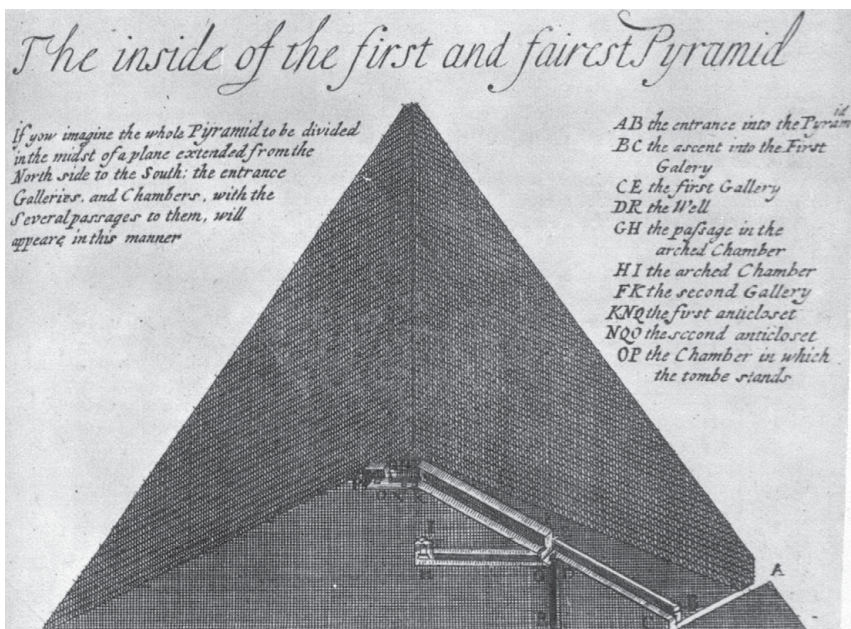 The inside of the first and fairest Pyramid
If you imagine the whole Pyramid to be divided
in the midst of a plane extended from the
North side to the South: the entrance
Galleries, and Chambers, with the
Several passages to them, will
appeare in this manner
AB the entrance into the Pyramid
BC the ascent into the First
Galery
CE the first Gallery
DR the Well
GH the passage in the
arched Chamber
HI the arched Chamber
FK the second Gallery
KNQ the first anticloset
NQO the second anticloset
OP the Chamber in which
the tombe stands
I
H
G
D
R
B
C
A